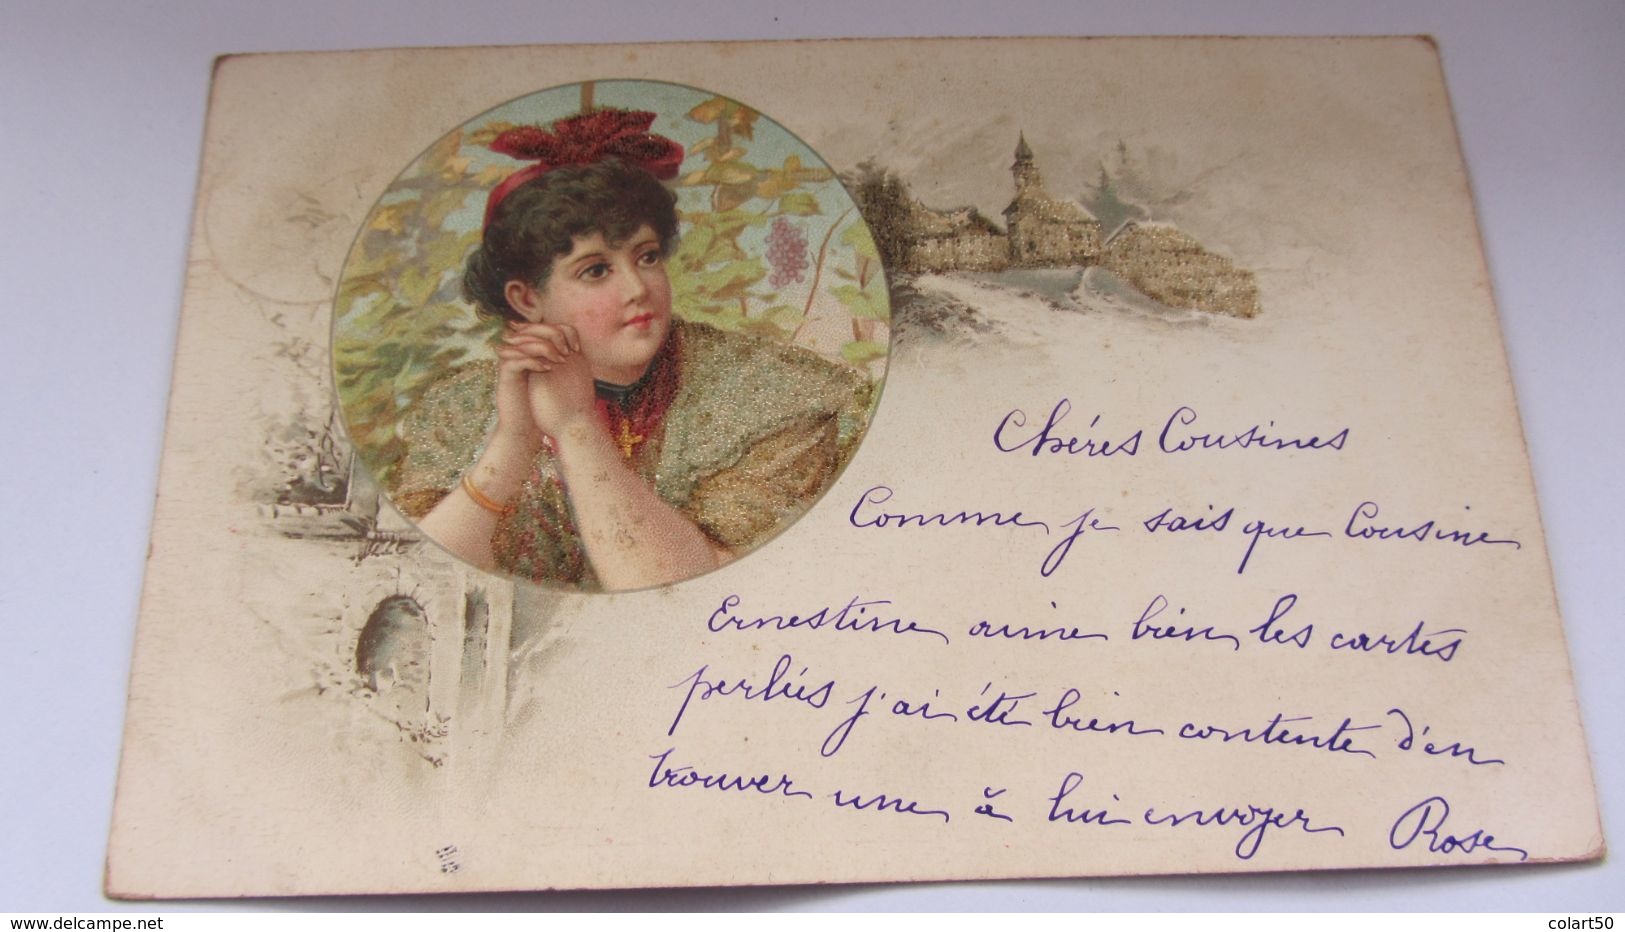 Chéres Cousines
Comme je sais que Cousine
Ernestine aime bien les cartes
perlées j'ai été bien contente d'en
trouver une à lui envoyer Rose
www.delcampe.net
colart50